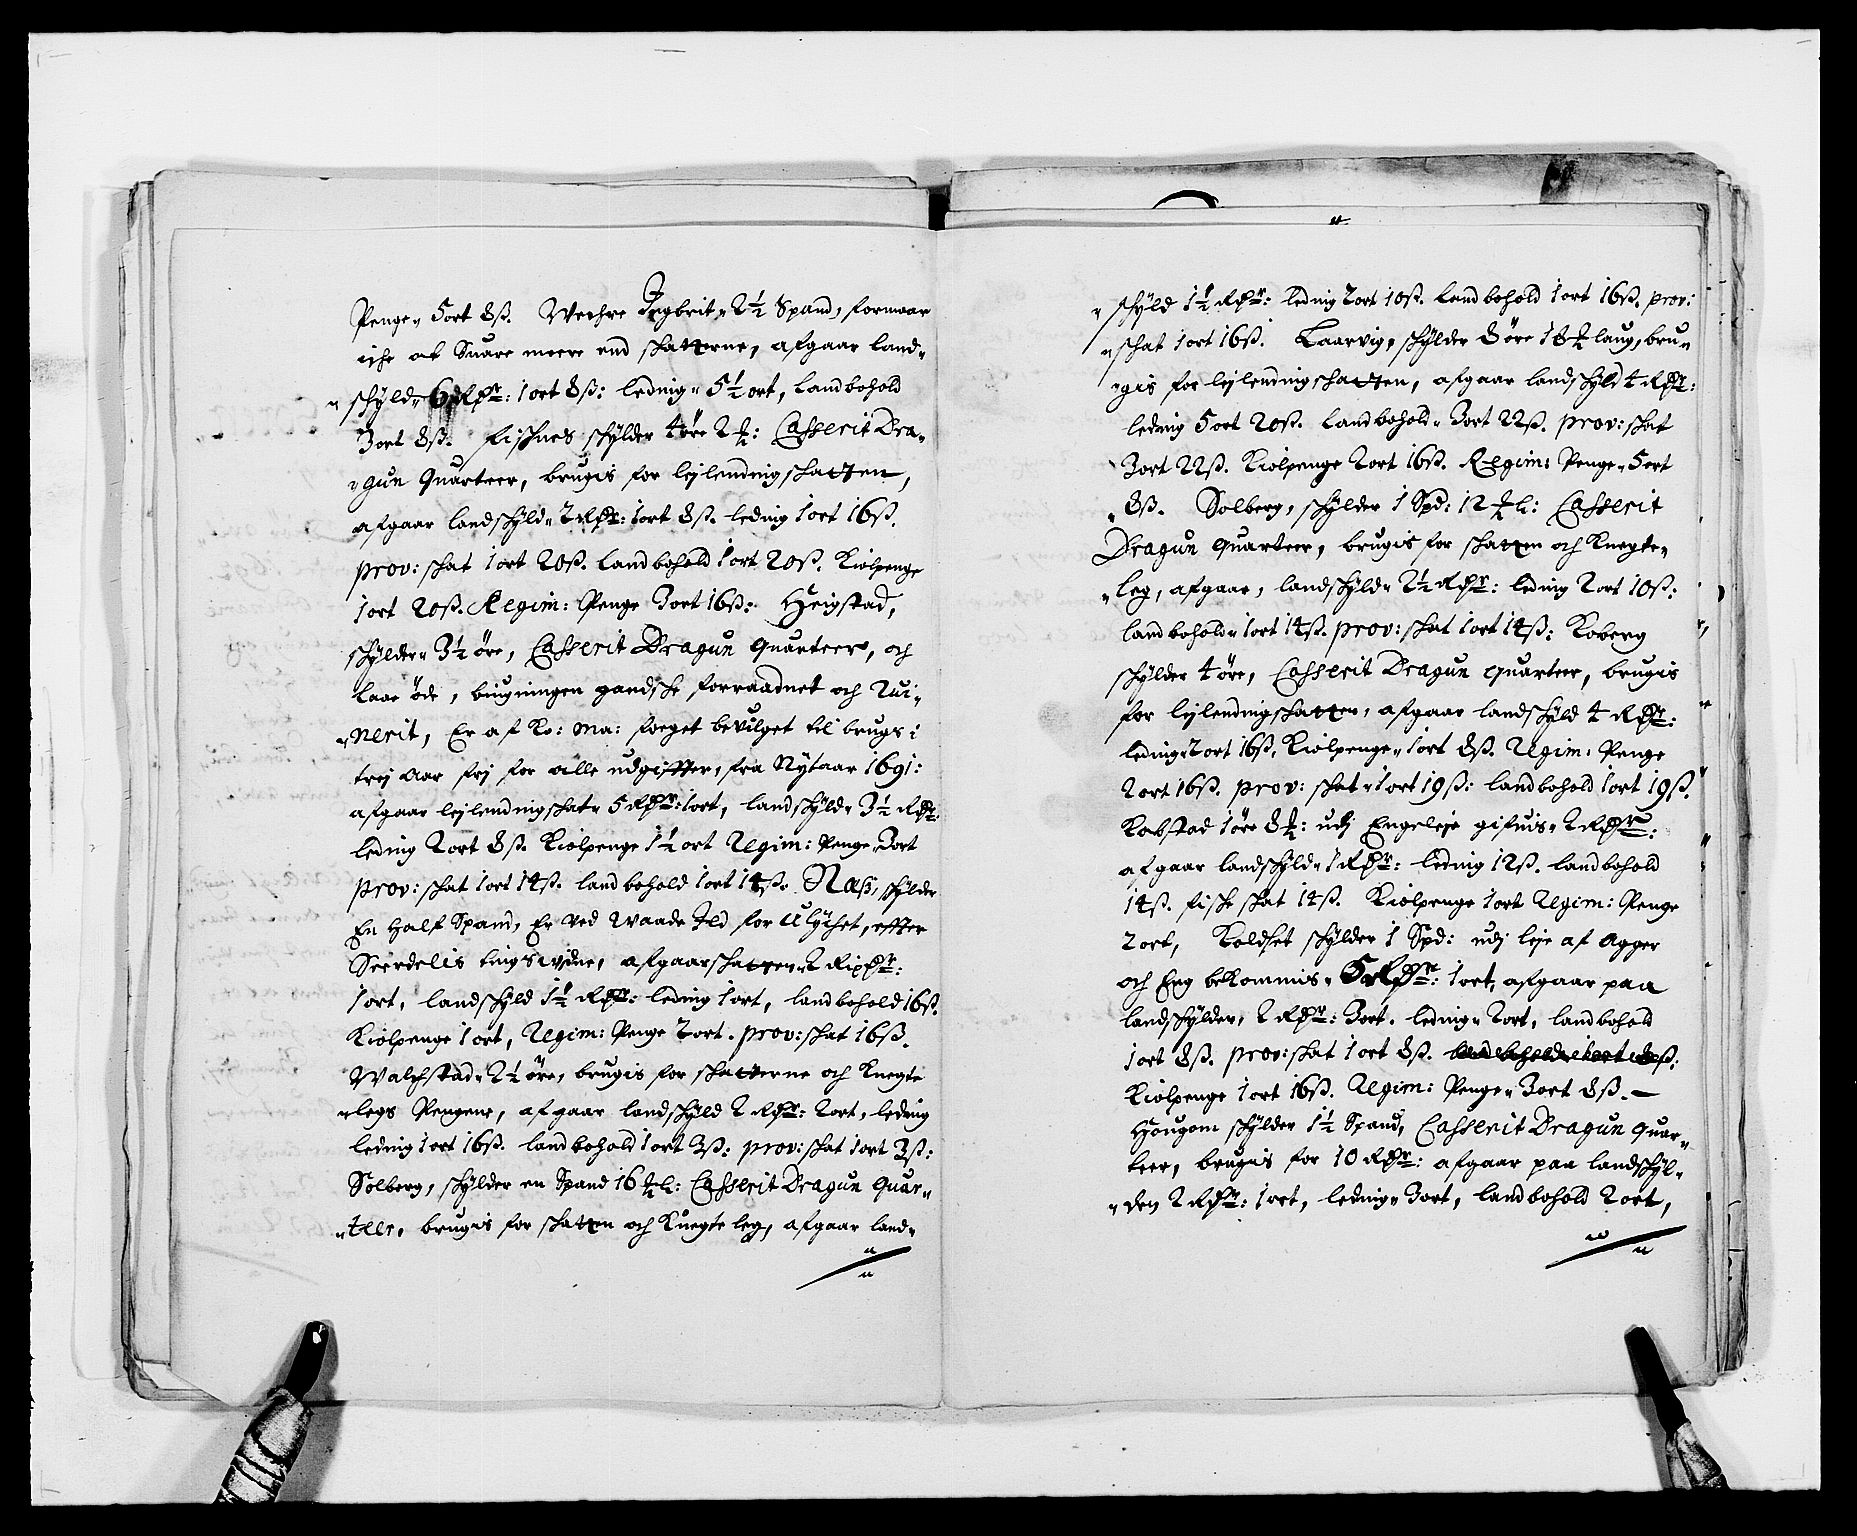 Penge 5 ort 8ß. Wechre Ingbrit 2½ Spand, formaar
iche at Suare meere end schatterne, afgaar land-
schyld 6 Rdr: 1 ort 8ß: leding 5½ ort, landbohold
3 ort 8ß. Fischnes schylder 4 øre 2 : Casserit Dra-
gun Quarteer, brugis for lejlendingschatten,
afgaar landschyld 2 Rdr: 1 ort 8ß. leding 1 ort 16ß.
prov: schat 1 ort 20ß. landbohold 1 ort 20ß. Kiølpenge
1 ort 20ß. Regim: Penge 3 ort 16ß: Heigstad,
schylder 3½ øre, Casserit Dragun Quarteer, och
laae øde, biugningen gandsche forraadnet och Rui-
nerit, Er af Ko: Ma: foeget bevilget til brugs i
trej Aar frj for alle udgiffter, fra Nytaar 1691:
afgaar lejlendingschat 5 Rdr: 1 ort, landschyld 3½ Rdr:
leding 2 ort 8ß. Kiølpenge 1½ ort Regim: Penge 3 ort
prov: schat 1 ort 14ß. landbohold 1 ort 14ß. Naß, schylder
En half Spand, Er ved Waade Ild for Ulychet, effter
Seerdelis tingswidne, afgaar schatten 2 Rixdr:
1 ort, landschyld 1½ Rdr: leding 1 ort, landbohold 16ß.
Kiølpenge 1 ort, Regim: Penge 2 ort. prov: schat 16ß.
Walchstad 2½ øre, brugis for schatterne och Knegte
legs Pengene, afgaar landschyld 2 Rdr: 2 ort, leding
leding 1 ort 16ß. landbohold 1 ort 3ß: prov: schat 1 ort 3ß:
Solberg, schylder en Spand 16 : Casserit Dragun Quar-
teer, brugis for schatten och Knegte leg, afgaar land-
schyld 1½ Rdr: leding 2 ort 10ß. landbohold 1 ort 16ß. prov:
schat 1 ort 16ß. Laarvig, schylder 8 øre 18 laug, bru-
gis for lejlendingschatten, afgaar landschyld 4 Rdr:
leding 5 ort 20ß. landbohold 3 ort 22ß. prov: schat
3 ort 22ß. Kiølpenge 2 ort 16ß. Regim: Penge 5 ort
8ß. Solberg, schylder 1 Spd: 12 : Casserit
Dragun Quarteer, brugis for schatten och Knegte-
leg, afgaar, landschyld 2½ Rdr: leding 2 ort 10ß:
landbohold 1 ort 14ß. prov: schat 1 ort 14ß: Koberg
schylder 4 øre, Casserit Dragun Quarteer, brugis
for lejlendingschatten, afgaar landschyld 4 Rdr:
leding 2 ort 16ß, Kiølpenge 1 ort 8ß. Regim: Penge
2 ort 16ß. prov: schat 1 ort 19ß: landbohold 1 ort 19ß.
Kobstad 1 øre 8 : udj Engeleje gifuis 2 Rdr:
afgaar landschyld 1 Rdr: leding 12ß. landbohold
14ß. fische schat 14ß. Kiølpenge 1 ort Regim: Penge
2 ort, Koldset schylder 1 Spd: udj leje af Agger
och Eng bekommis 5 Rdr: 1 ort, afgaar paa
landschylden, 2 Rdr: 3 ort. leding 2 ort, landbohold
1 ort 8ß. prov: schat 1 ort 8ß.
Kiølpenge 1 ort 16ß. Regim: Penge 3 ort 8ß. —
Hougom schylder 1½ Spand, Casserit Dragun Quar-
teer, brugis for 10 Rdr: afgaar paa landschyl-
den 2 Rdr: 1 ort, leding 3 ort, landbohold 2 ort,